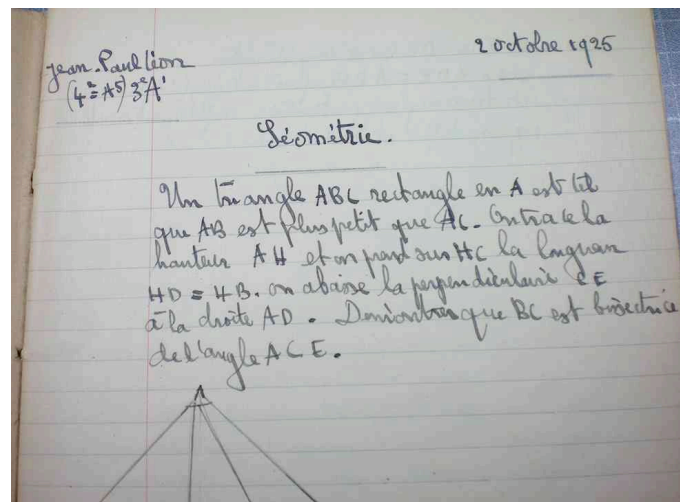 Jean-Paul Léon
2 octobre 1925
(4e = A5) 3e A1
Géométrie.
Un triangle ABC rectangle en A est tel
que AB est plus petit que AC. On trace la
hauteur AH et on prend sur HC la longueur
HD = HB. on abaisse la perpendiculaire CE
à la droite AD. Démontrer que BC est bissectrice
de l'angle ACE.
A